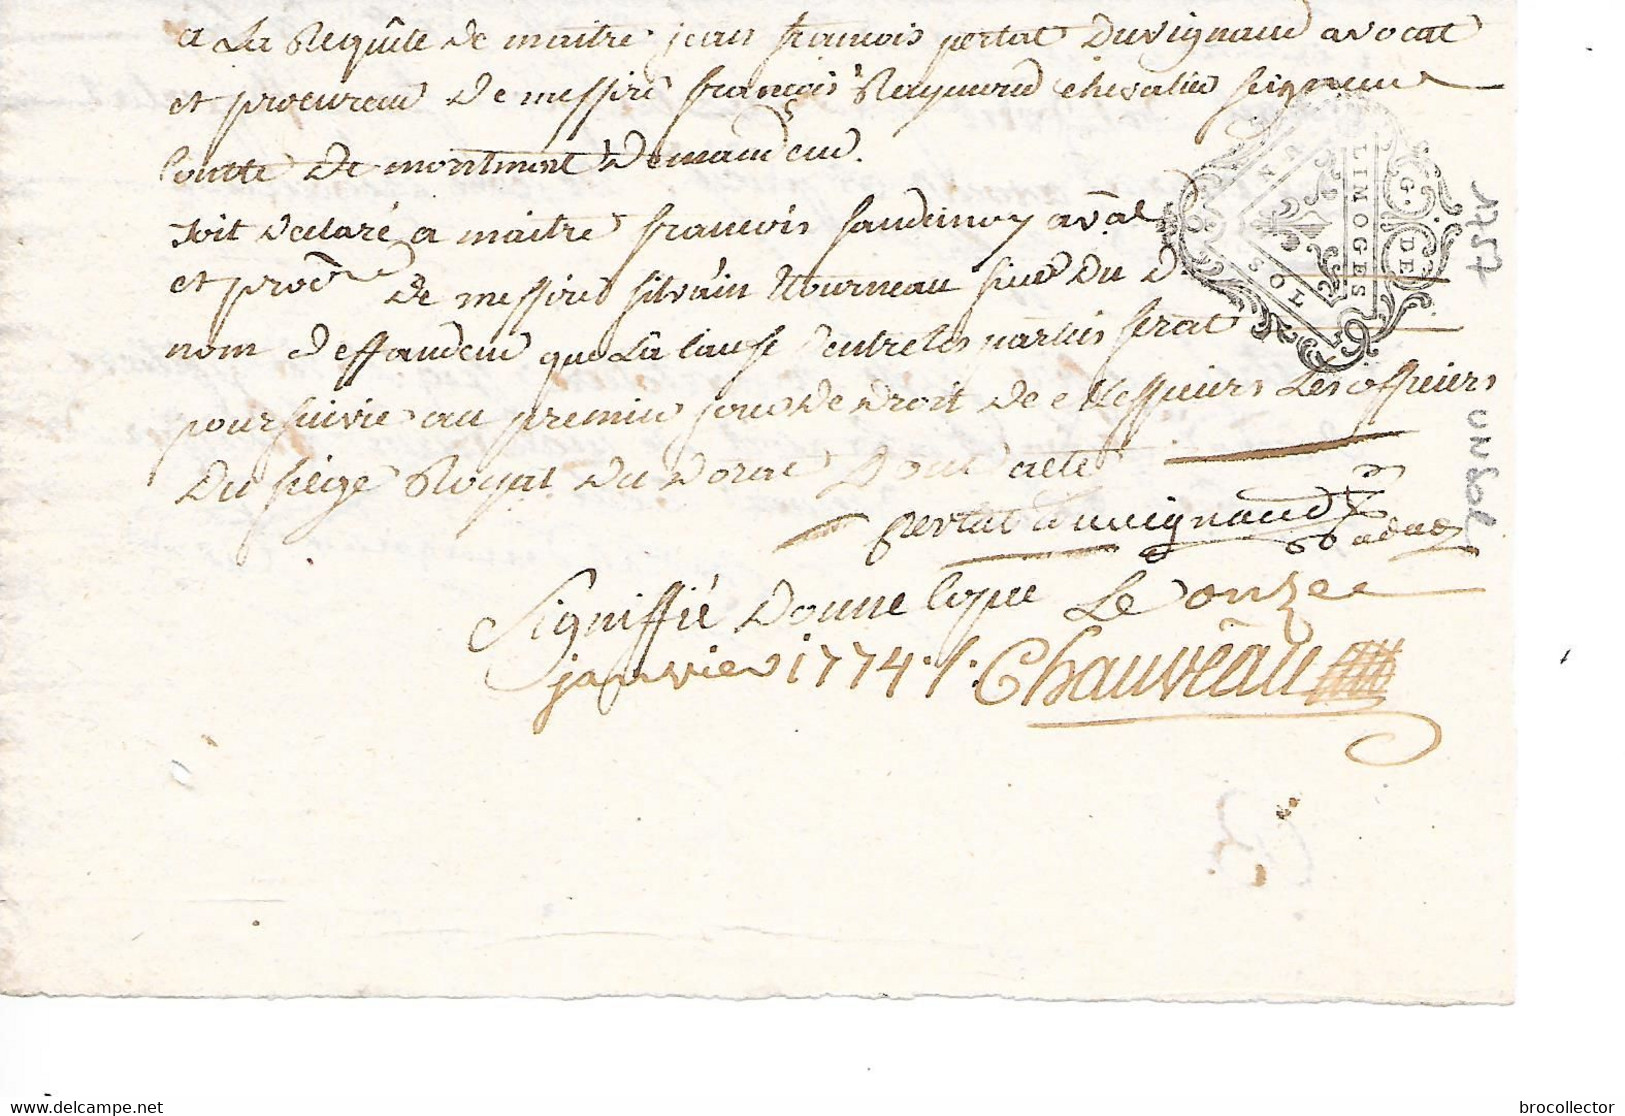 a La Requête de maitre jean francois pertat Duvignaud avocat
et procureur de messire françois Raymond chevalier seigneur
Comte de montment demandeur.
soit declaré a maitre francois Saudemoy avoat
et procr de messire silvain Nourneau sieur du D
nom deffandeur que La Cause d'entre les parties serat
poursuivie au premier jour de droit de Messieurs Les officiers
Du siége Royal du Dorat Dont acte
pertat duvignaud
Signiffié Donné Copie Le onzee
janvier 1774. f. Chauvéau
G. DE
LIMOGES
UN SOL
un sol
brocollector